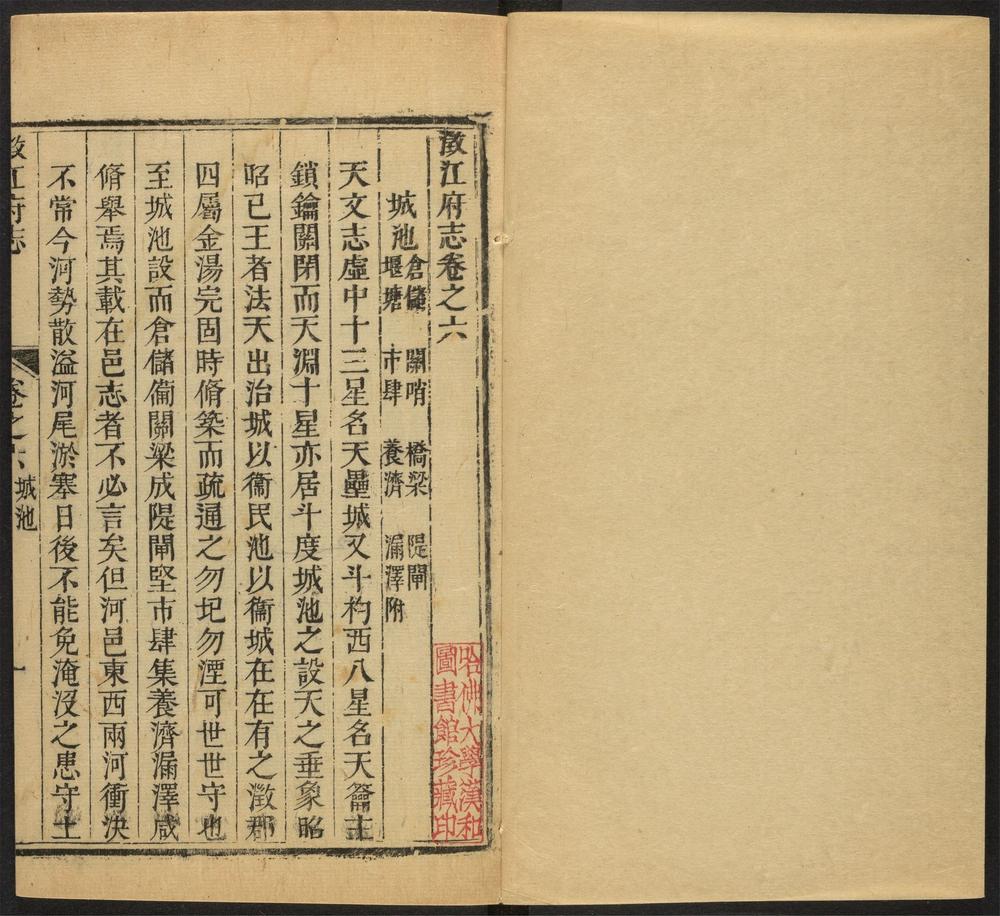 澂江府志卷之六
城池 倉儲 關哨 橋梁 隄閘
堰塘 市肆 養濟 漏澤附
天文志虛中十三星名天壘城又斗杓西八星名天籥主
鎖鑰關閉而天淵十星亦居斗度城池之設天之垂象昭
昭已王者法天出治城以衞民池以衞城在在有之澂郡
四屬金湯完固時脩築而疏通之勿圮勿湮可世世守也
至城池設而倉儲僃關梁成隄閘堅市肆集養濟漏澤咸
脩舉焉其載在邑志者不必言矣但河邑東西兩河衝決
不常今河勢散溢河尾淤塞日後不能免淹沒之患守土
澂江府志 卷之六 城池 一
哈佛大學漢和
圖書館珍藏印